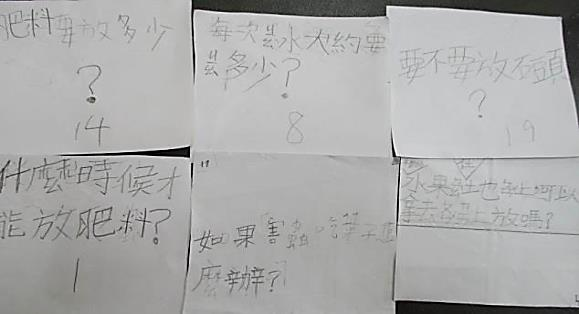 肥料要放多少
?
14
每次水大約要
多少?
8
要不要放石頭
?
19
什麼時候才
能放肥料?
1
如果害蟲吃葉子怎
麼辦?
水果也可以
拿去上放嗎?